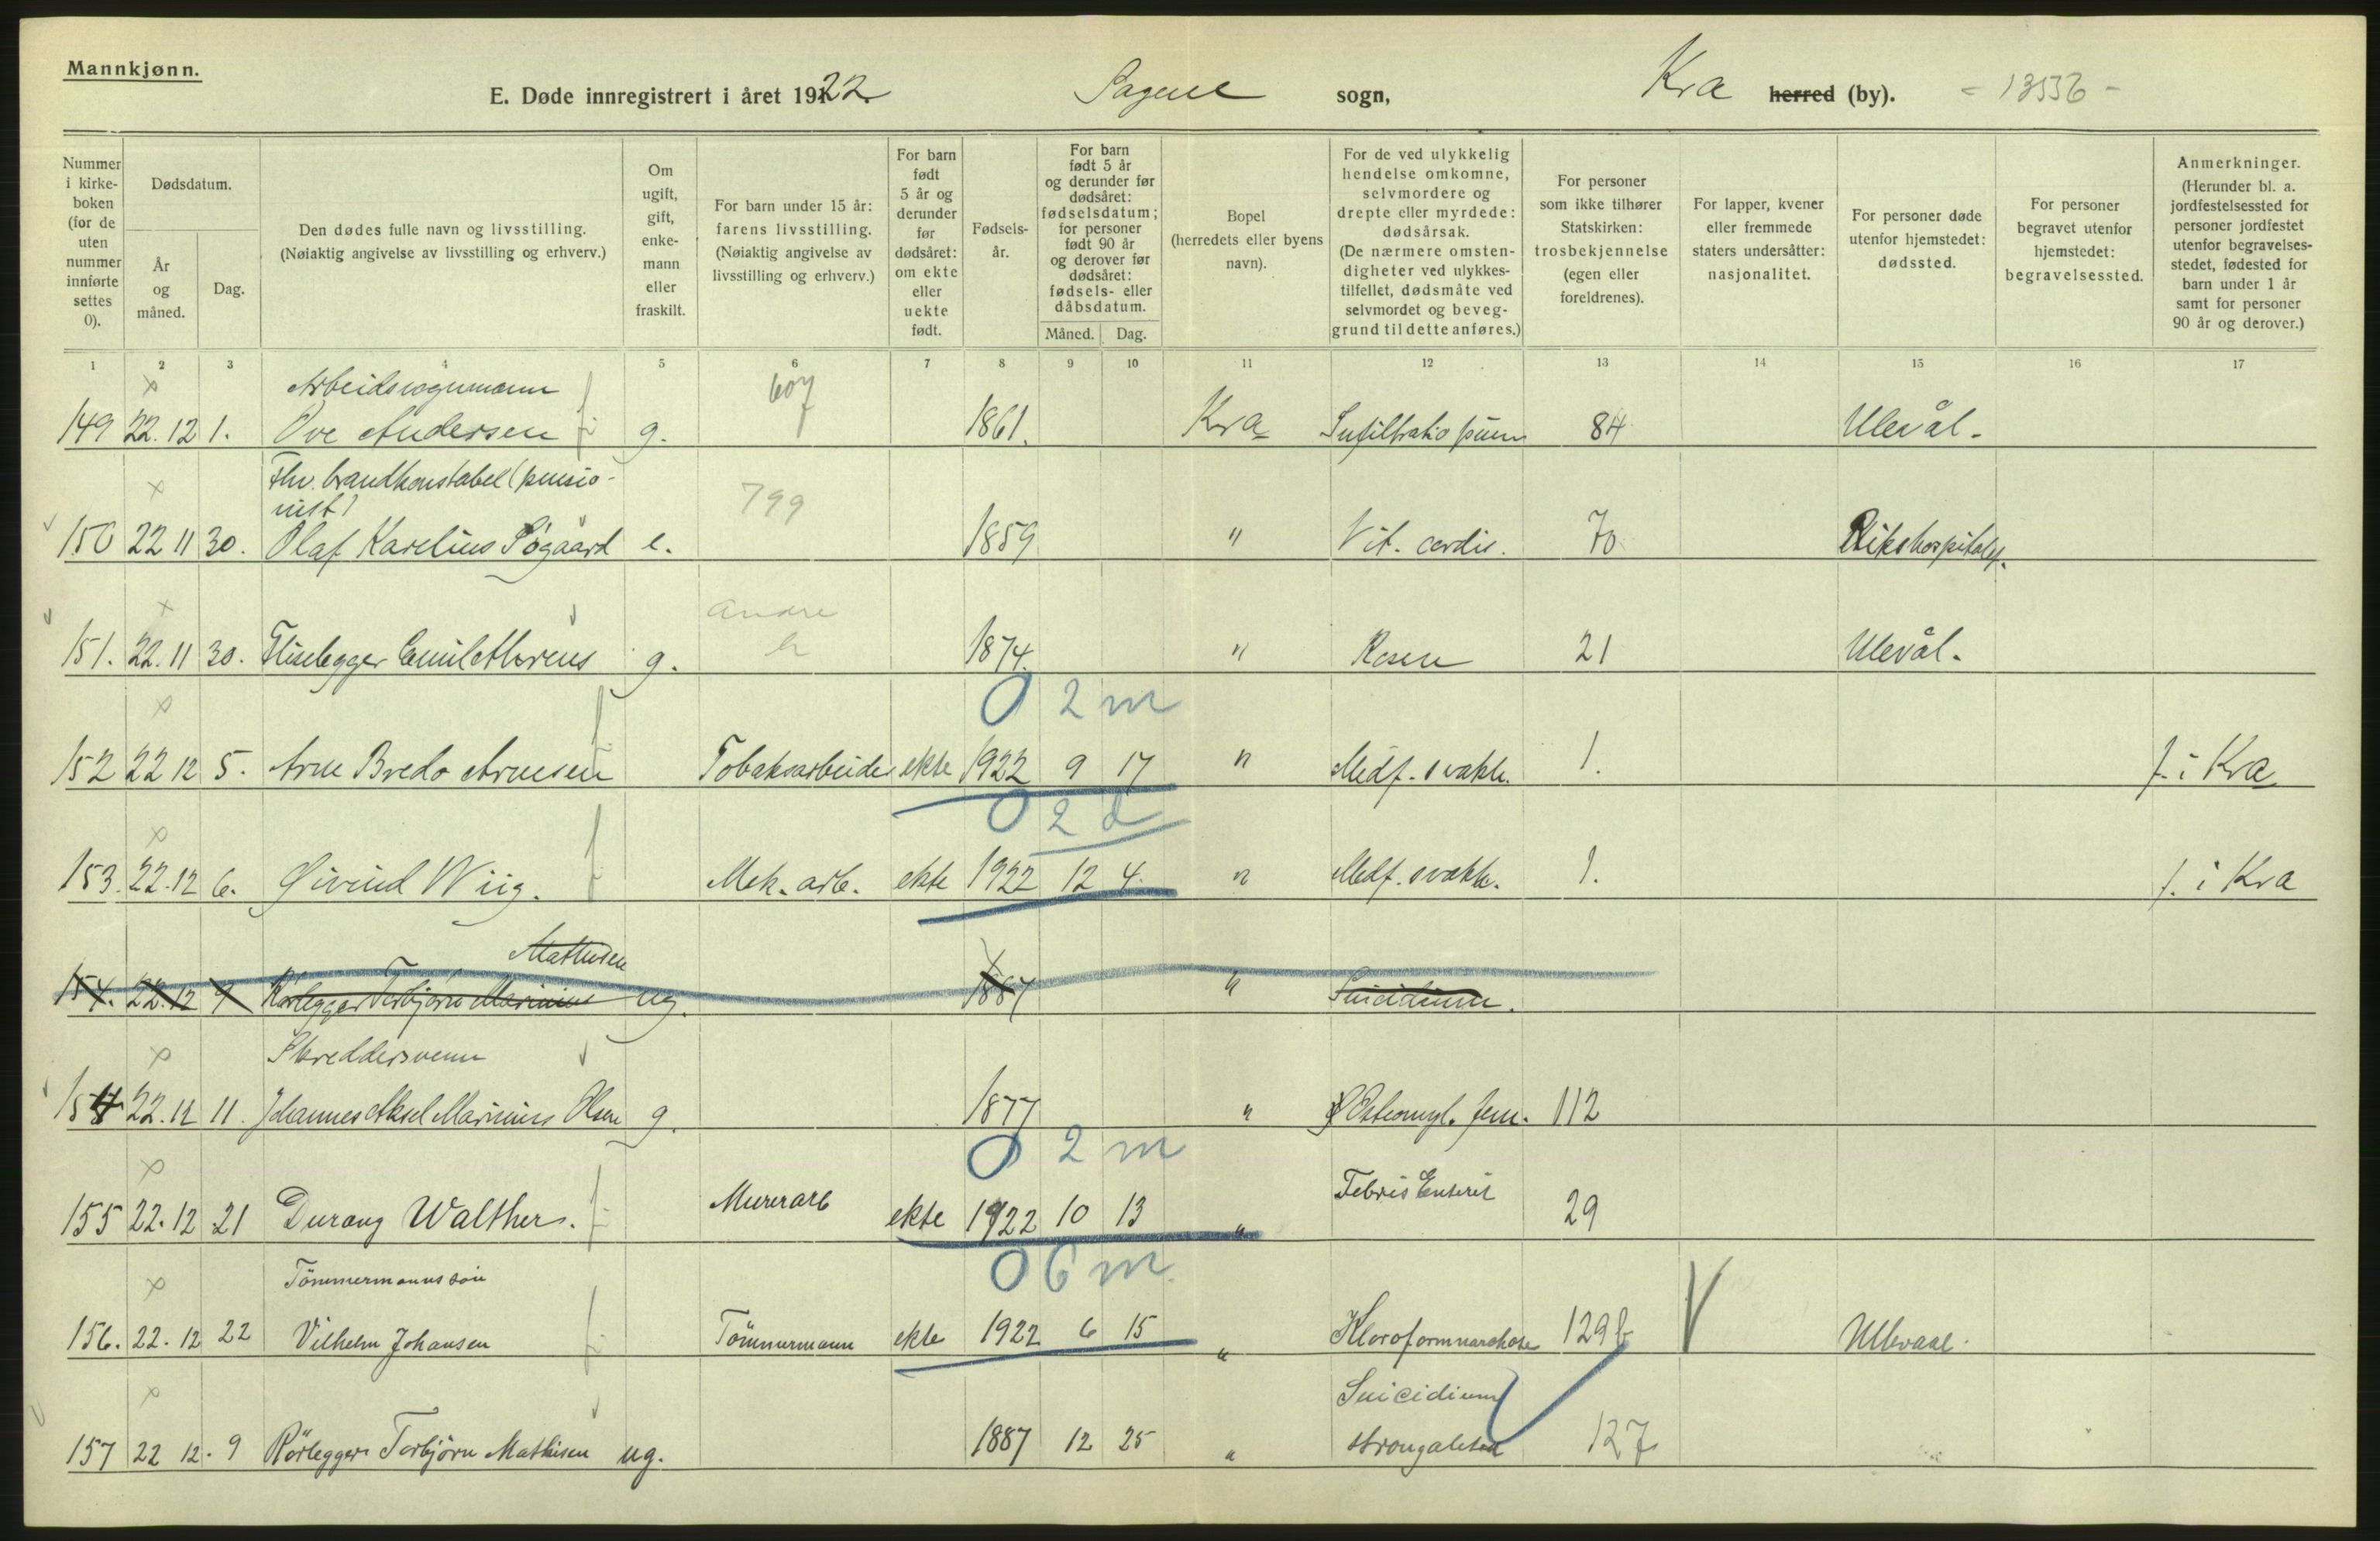 Mannkjønn.
E. Døde innregistrert i året 1922 Sagene sogn, Kra herred (by). - 13536 -
Nummer i kirkeboken (for de uten nummer innførte settes 0).
Dødsdatum.
År og måned.
Dag.
Den dødes fulle navn og livsstilling.
(Nøiaktig angivelse av livsstilling og erhverv.)
Om ugift, gift, enkemann eller fraskilt.
For barn under 15 år: farens livsstilling.
(Nøiaktig angivelse av livsstilling og erhverv.)
For barn født 5 år og derunder før dødsåret: om ekte eller uekte født.
Fødselsår.
For barn født 5 år og derunder før dødsåret: fødselsdatum; for personer født 90 år og derover før dødsåret: fødsels- eller dåbsdatum.
Måned. Dag.
Bopel (herredets eller byens navn).
For de ved ulykkelig hendelse omkomne, selvmordere og drepte eller myrdede: dødsårsak.
(De nærmere omstendigheter ved ulykkestilfellet, dødsmåte ved selvmordet og beveggrund til dette anføres.)
For personer som ikke tilhører Statskirken: trosbekjennelse (egen eller foreldrenes).
For lapper, kvener eller fremmede staters undersåtter: nasjonalitet.
For personer døde utenfor hjemstedet: dødssted.
For personer begravet utenfor hjemstedet: begravelsessted.
Anmerkninger.
(Herunder bl. a. jordfestelsessted for personer jordfestet utenfor begravelsesstedet, fødested for barn under 1 år samt for personer 90 år og derover.)
1 2 3 4 5 6 7 8 9 10 11 12 13 14 15 16 17
Arbeidsvognmann 607
149 22.12 1. Ove Andersen g. 1861. Kra 84 Ulevål.
Fhv. brandkonstabel (pensionist) 799
150 22 11 30. Olaf Karelius Søgaard e. 1859 " Vit. cordis. 70 Rikshospitalet.
andre
151. 22.11 30. Fliselegger Emil Ahrens g. 1874. " Rosen 21 Ulevål.
0 2 m
152 22 12 5. Arne Bredo Arnesen Tobaksarbeider ekte 1922 9 17 " Medf. svakh. 1. f. i Kra
0 2 d
153. 22.12 6. Øivind Wiig. Mek. arb. ekte 1922 12 4. " Medf. svakh. 1. f. i Kra
Mathisen
154. 22.12 9 Rørlegger Torbjørn Marinius ug. 1887 " Suicidium.
Skreddersvenn
154 22.12 11. Johannes Aksel Marinius Olsen g. 1877 " Osteomyl. fem. 112
0 2 m
155 22.12 21 Durang Walther. Murerarb ekte 1922 10 13 " Febris Enterit 29
Tömmermanns søn 0 6 m
156. 22.12 22 Vilhelm Johansen Tömmermann ekte 1922 6 15 " Kloroformnarkose 129b V Ullevaal.
Suicidium
157 22 12. 9 Rörlegger Torbjörn Mathisen ug. 1887 12 25 " 127